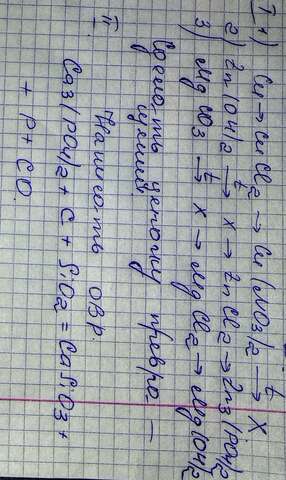 I 1) Cu → CuCl2 → Cu(NO3)2 →t X
2) Zn(OH)2 →t X → ZnCl2 → Zn3(PO4)2
3) MgCO3 →t X → MgCl2 → Mg(OH)2
Сделать цепочку превра-
щений.
II Написать ОВР.
Ca3(PO4)2 + C + SiO2 = CaSiO3 +
+ P + CO.